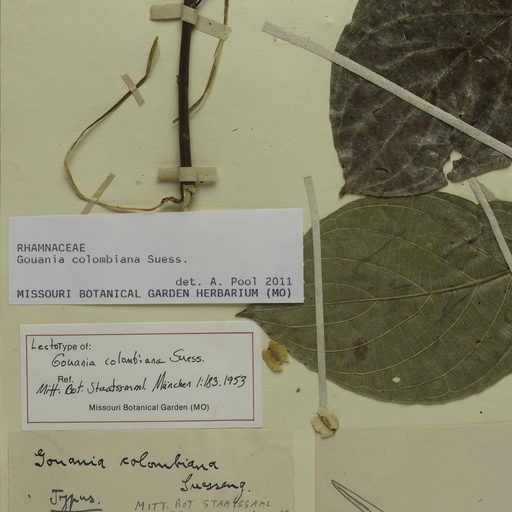 RHAMNACEAE
Gouania colombiana Suess.
det. A. Pool 2011
MISSOURI BOTANICAL GARDEN HERBARIUM (MO)
LectoType of:
Gouania colombiana Suess.
Ref.
Mitt. Bot. Staatssamml. München 1:183. 1953
Missouri Botanical Garden (MO)
Gouania colombiana
Suesseng.
Typus.
MITT. BOT. STAATSSAML.